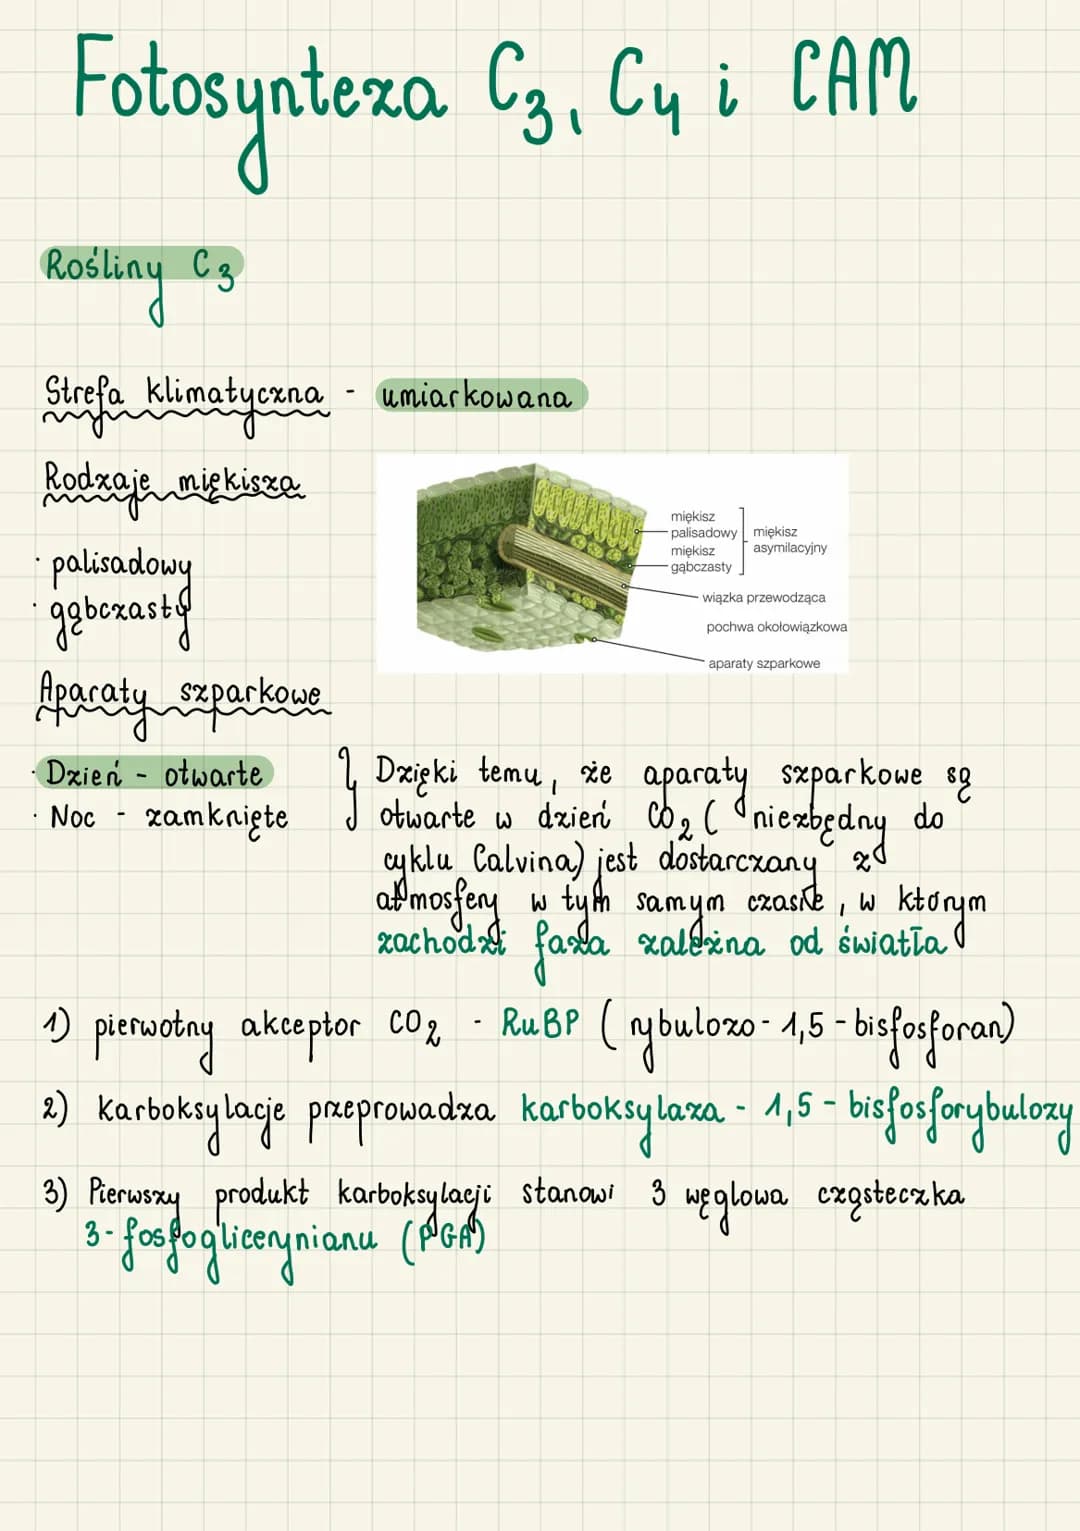 Fotosynteza C3, C4 i CAM
Rośliny C3
Strefa klimatyczna - umiarkowana
Rodzaje miękisza
· palisadowy
· gąbczasty
miękisz
palisadowy
miękisz
gąbczasty
miękisz
asymilacyjny
wiązka przewodząca
pochwa okołowiązkowa
aparaty szparkowe
Aparaty szparkowe
· Dzień - otwarte
· Noc - zamknięte
} Dzięki temu, że aparaty szparkowe są
otwarte w dzień CO2 ( niezbędny do
cyklu Calvina) jest dostarczany z
atmosfery w tym samym czasie, w którym
zachodzi faza zależna od światła
1) pierwotny akceptor CO2 - RuBP ( rybulozo - 1,5 - bisfosforan)
2) Karboksylacje przeprowadza karboksylaza - 1,5 - bisfosforybulozy
3) Pierwszy produkt karboksylacji stanowi 3 węglowa cząsteczka
3 - fosfoglicerynianu (PGA)